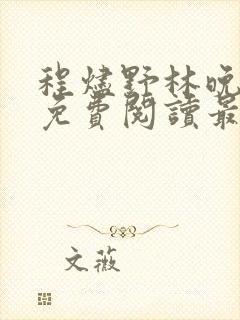 程燼野林晚
免費閱讀最
文薇